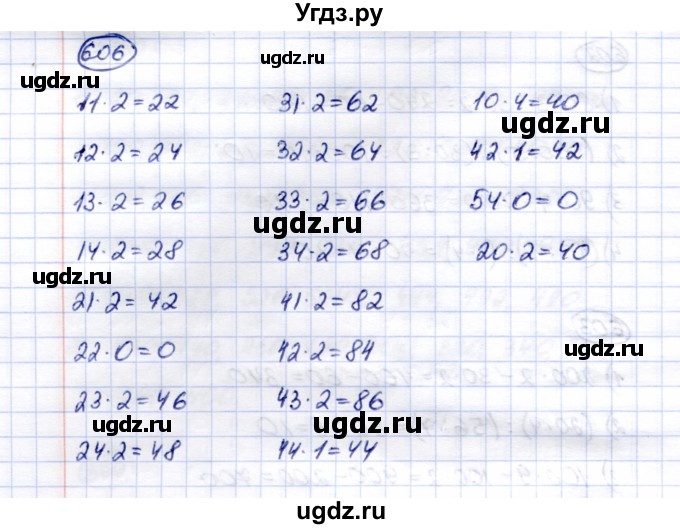 Угдз.ру
606
ugdz.ru
ugdz.ru
11·2=22 31·2=62 10·4=40
ugdz.ru
12·2=24 32·2=64 42·1=42
13·2=26 33·2=66 54·0=0
ugdz.ru
14·2=28 34·2=68 20·2=40
ugdz.ru
ugdz.ru
21·2=42 41·2=82
22·0=0 42·2=84
ugdz.ru
ugdz.ru
23·2=46 43·2=86
ugdz.ru
24·2=48 44·1=44
ugdz.ru
ugdz.ru